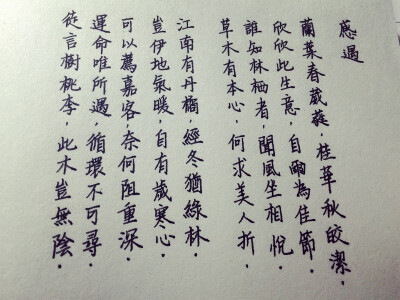 感遇
蘭葉春葳蕤，桂華秋皎潔．
欣欣此生意，自爾為佳節．
誰知林栖者，聞風坐相悅．
草木有本心，何求美人折．
江南有丹橘，經冬猶綠林．
豈伊地氣暖，自有歲寒心．
可以薦嘉客，奈何阻重深．
運命唯所遇，循環不可尋．
徒言樹桃李，此木豈無陰．